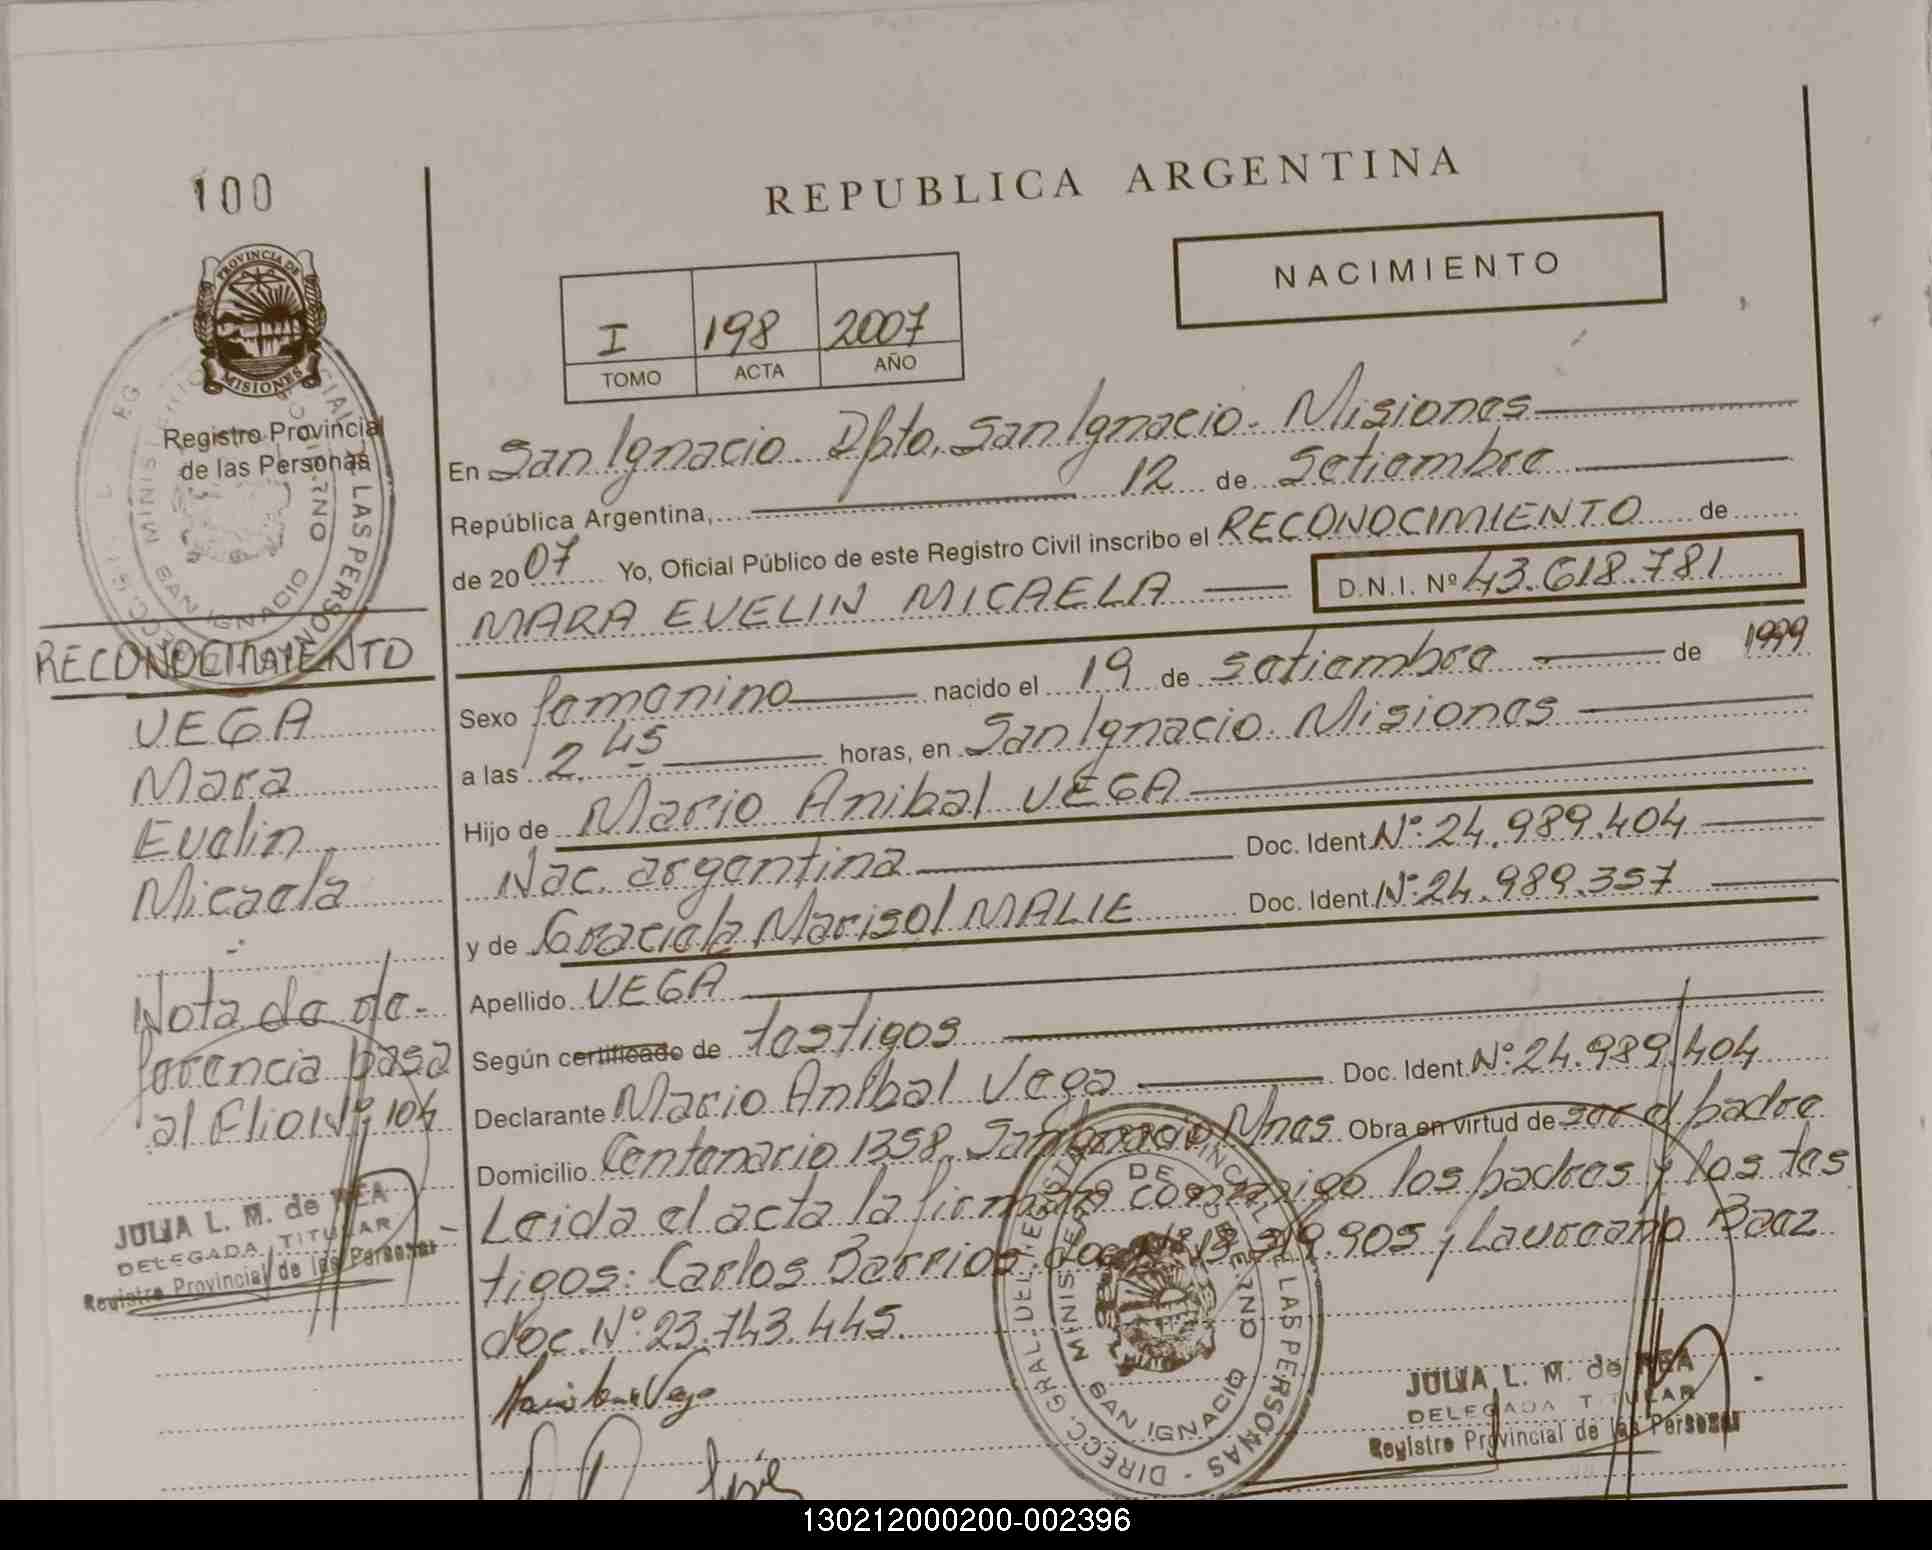 100
REPUBLICA ARGENTINA
NACIMIENTO
PROVINCIA DE
MISIONES
Registro Provincial
de las Personas
I 198 2007
TOMO ACTA AÑO
En San Ignacio Dpto. San Ignacio. Misiones
República Argentina, 12 de Setiembre
de 2007 Yo, Oficial Público de este Registro Civil inscribo el RECONOCIMIENTO de
MARA EVELIN MICAELA D.N.I. Nº 43.618.781
Sexo femenino nacido el 19 de setiembre de 1999
a las 2.45 horas, en San Ignacio. Misiones
Hijo de Mario Anibal VEGA
Nac. argentina Doc. Ident. Nº: 24.989.404
y de Graciela Marisol MALIE Doc. Ident. Nº: 24.989.357
Apellido VEGA
Según certificado de testigos
Declarante Mario Anibal Vega Doc. Ident. Nº: 24.989.404
Domicilio Centenario 1358. San Ignacio Mnes. Obra en virtud de ser el padre
Leida el acta la firman conmigo los padres y los tes
tigos: Carlos Barrios doc. Nº 18.319.905 y Laureano Baez
doc. Nº: 23.743.445.
RECONOCIMIENTO
VEGA
Mara
Evelin
Micaela
Nota de re-
ferencia pasa
al Flio Nº 104
JULIA L. M. de REA
DELEGADA TITULAR
Registro Provincial de las Personas
DE
SAN IGNACIO
JULIA L. M. de REA
DELEGADA TITULAR
Registro Provincial de las Personas
130212000200-002396